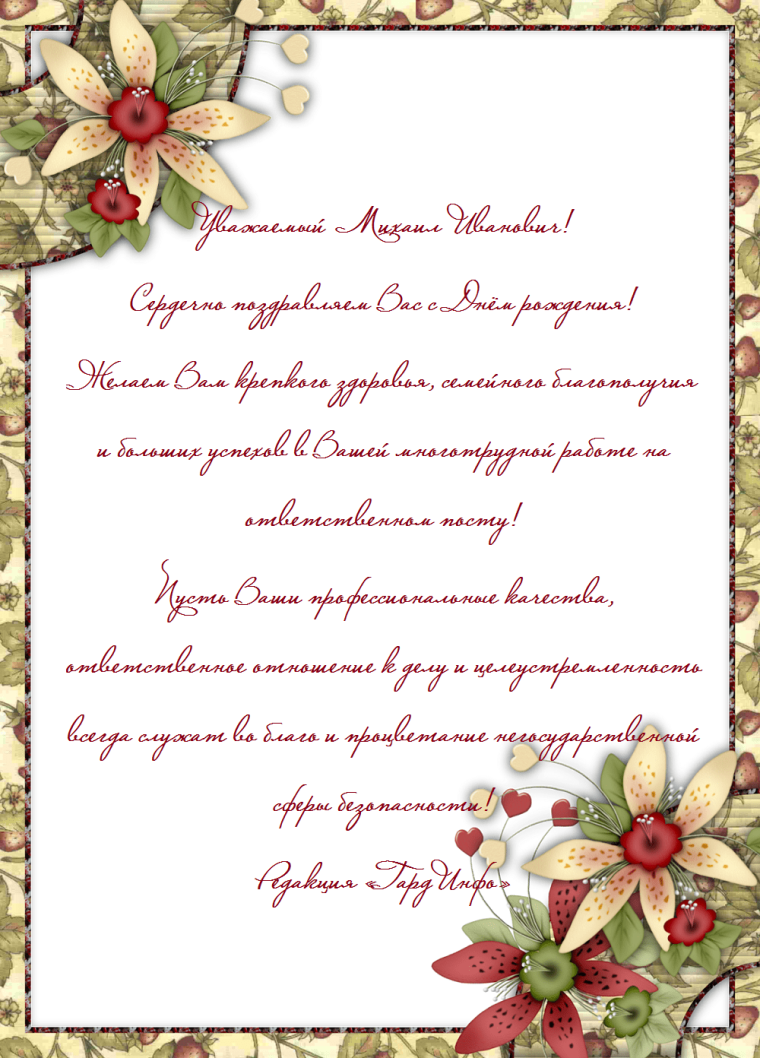 Уважаемый Михаил Иванович!
Сердечно поздравляем Вас с Днём рождения!
Желаем Вам крепкого здоровья, семейного благополучия
и больших успехов в Вашей многотрудной работе на
ответственном посту!
Пусть Ваши профессиональные качества,
ответственное отношение к делу и целеустремленность
всегда служат во благо и процветание негосударственной
сферы безопасности!
Редакция «Гард Инфо»